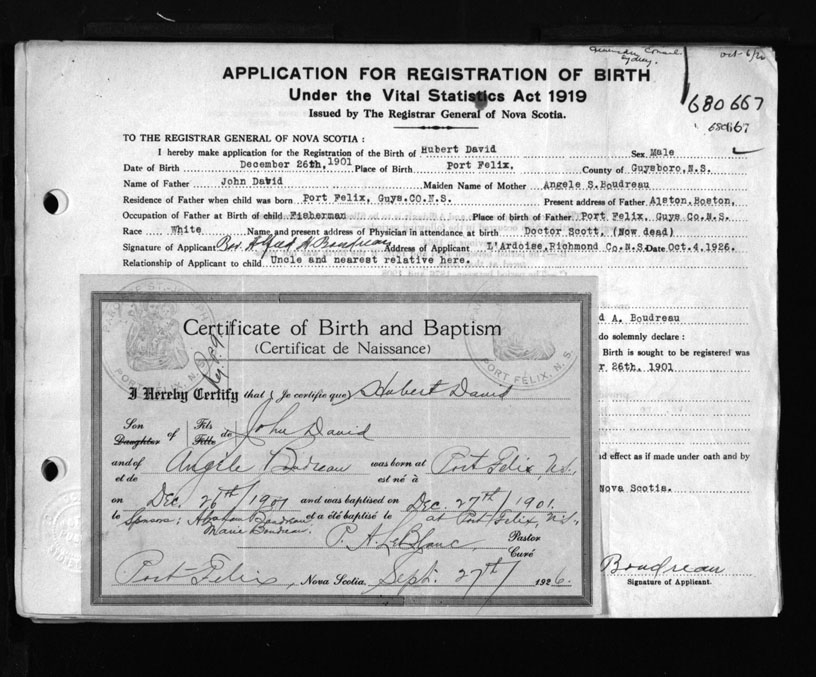 oct-6/26
680667
APPLICATION FOR REGISTRATION OF BIRTH
Under the Vital Statistics Act 1919
Issued by The Registrar General of Nova Scotia.
TO THE REGISTRAR GENERAL OF NOVA SCOTIA :
I hereby make application for the Registration of the Birth of Hubert David Sex Male
Date of Birth December 26th, 1901 Place of Birth Port Felix. County of Guysboro, N.S.
Name of Father John David Maiden Name of Mother Angele S. Boudreau
Residence of Father when child was born Port Felix, Guys.CO.N.S. Present address of Father Alston, Boston,
Occupation of Father at Birth of child Fisherman Place of birth of Father Port Felix, Guys Co.N.S.
Race White Name and present address of Physician in attendance at birth Doctor Scott, (Now dead)
Signature of Applicant Rev. Alfred A. Boudreau Address of Applicant L'Ardoise, Richmond Co.N.S. Date Oct.4,1926.
Relationship of Applicant to child Uncle and nearest relative here.
d A. Boudreau
do solemnly declare :
Birth is sought to be registered was
r 26th. 1901
d effect as if made under oath and by
Nova Scotia.
Boudreau
Signature of Applicant.
PORT FELIX, N. S.
PORT FELIX, N. S.
Certificate of Birth and Baptism
(Certificat de Naissance)
I Hereby Certify that ( Je certifie que ) Hubert David
Son Fils
Daughter of Fille de John David
and of Angele Boudreau was born at Port Felix, N.S.,
et de est né à
on Dec. 26th/1901 and was baptised on Dec. 27th/1901.
to Sponsors: Abraham Boudreau et a été baptisé to at Port Felix, N.S.,
Marie Boudreau.
P. A. LeBlanc, Pastor
Curé
Port Felix, Nova Scotia, Sept. 27th/ 1926.